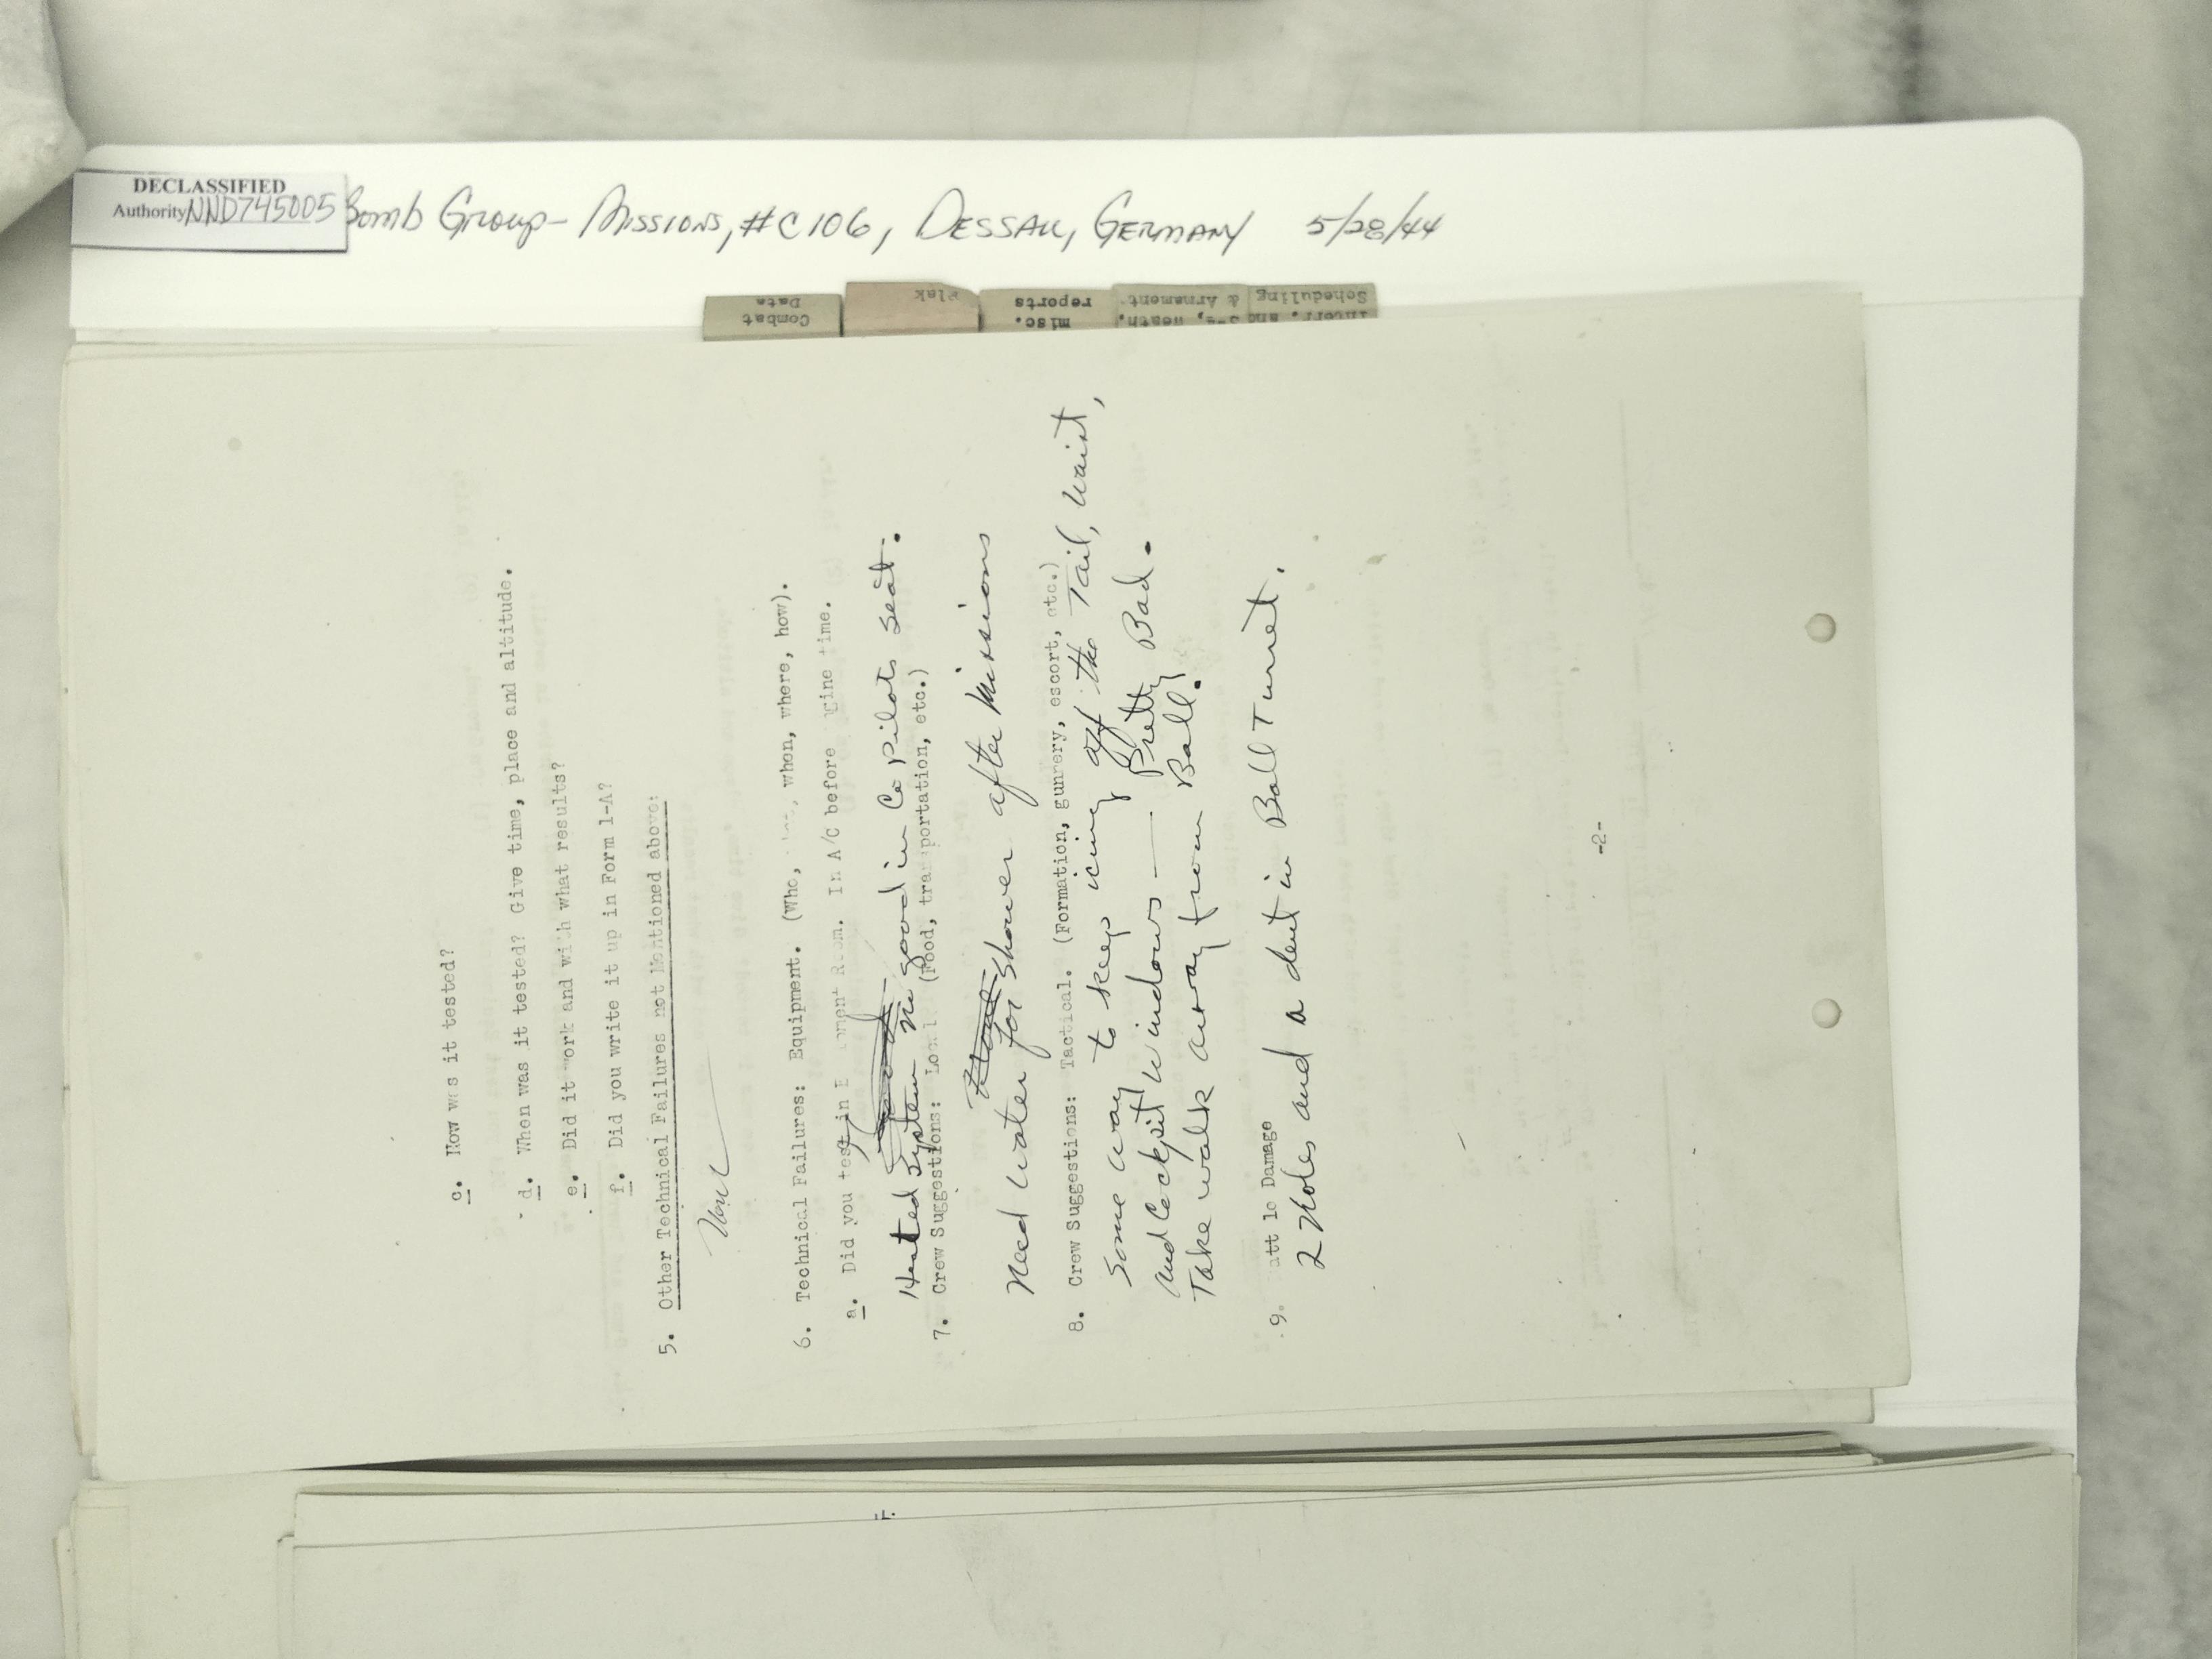 DECLASSIFIED
Authority NND745005
Bomb Group - Missions, #C106, Dessau, Germany 5/28/44
Combat
Data
Flak
misc.
reports
Interr. and
& Armament
Scheduling
c. How was it tested?
d. When was it tested? Give time, place and altitude.
e. Did it work and with what results?
f. Did you write it up in Form 1-A?
5. Other Technical Failures not Mentioned above:
None
6. Technical Failures: Equipment. (Who, what, when, where, how).
a. Did you test in Equipment Room. In A/C before Engine time.
Heated System no good in Co pilots seat.
7. Crew Suggestions: Local (Food, transportation, etc.)
Need water for shower after missions
8. Crew Suggestions: Tactical. (Formation, gunnery, escort, etc.)
Some way to keep icing off the Tail, Waist,
And Cockpit Windows — Pretty Bad.
Take walk away from Ball.
9. Battle Damage
2 Holes and a dent in Ball Turret.
-2-